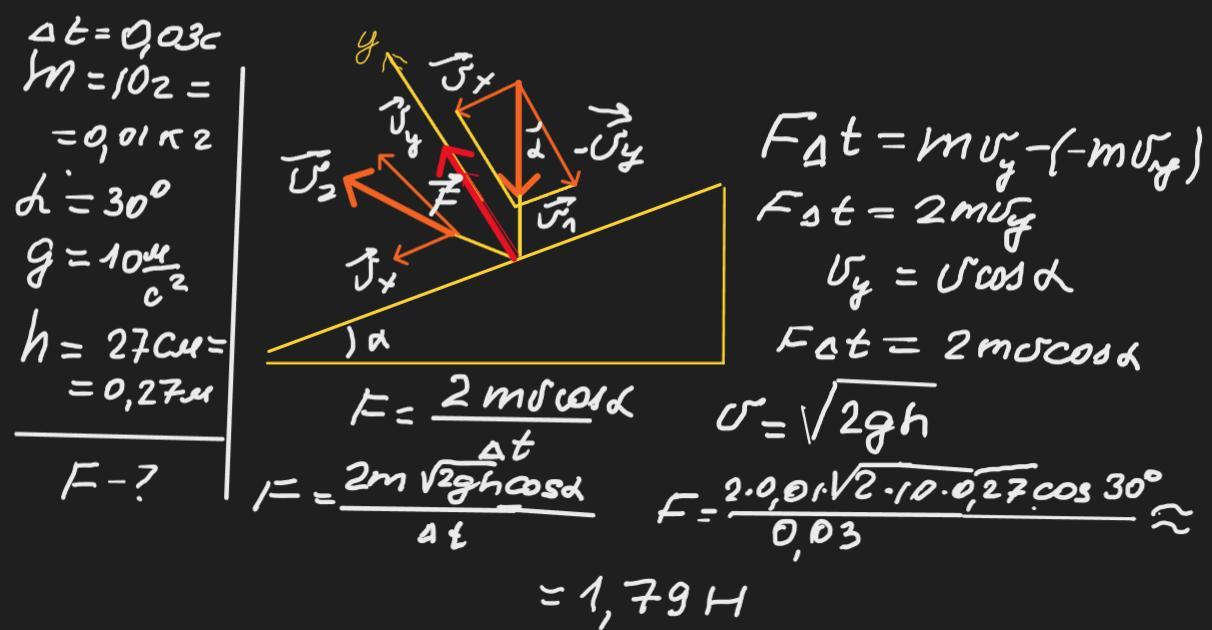 Δt = 0,03с
m = 10г =
= 0,01кг
α = 30°
g = 10 м/с²
h = 27см =
= 0,27м
F - ?
y
v⃗ₓ
v⃗ᵧ
α
-v⃗ᵧ
v⃗₂
F⃗
v⃗₁
v⃗ₓ
α
FΔt = mvᵧ - (-mvᵧ)
FΔt = 2mvᵧ
vᵧ = v cos α
FΔt = 2mv cos α
F = 2mv cos α / Δt
v = √2gh
F = 2m √2gh cos α / Δt
F = 2·0,01·√2·10·0,27 cos 30° / 0,03 ≈
= 1,79 Н